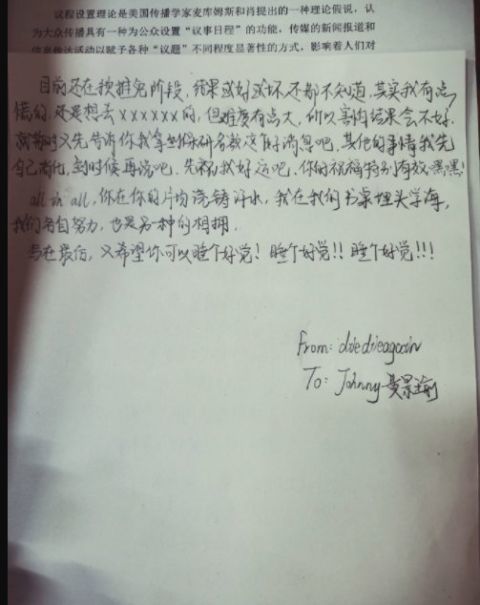 议程设置理论是美国传播学家麦库姆斯和肖提出的一种理论假说，认
为大众传播具有一种为公众设置“议事日程”的功能，传媒的新闻报道和
信息传达活动以赋予各种“议题”不同程度显著性的方式，影响着人们对
目前还在 阶段，结果或好或坏还都不知道，其实我有点
的，还是想去xxxxxx的，但难度有点大，所以害怕结果会不好。
先告诉你我拿到保研名额这个好消息吧，其他的事情我先
自己 ，到时候再说吧。先祝我好运吧，你的祝福特别有效，嘿嘿！
all in all，你在你的片场挥洒汗水，我在我的书桌埋头学海，
我们各自努力，也是另一种的相拥.
写在最后，又希望你可以睡个好觉！睡个好觉！！睡个好觉！！！
from: diedieagain
To: Johnny-黄景瑜